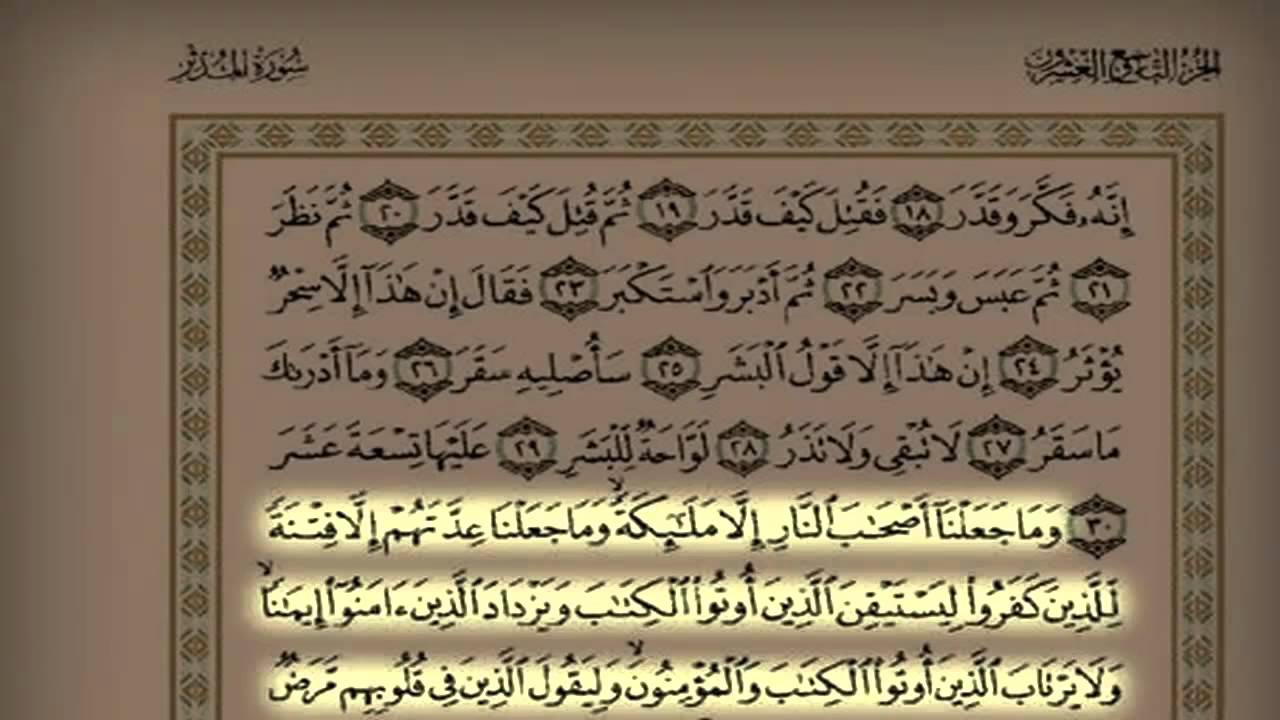 الجزء التاسع والعشرون
سورة المدثر
إِنَّهُۥ فَكَّرَ وَقَدَّرَ ١٨ فَقُتِلَ كَيْفَ قَدَّرَ ١٩ ثُمَّ قُتِلَ كَيْفَ قَدَّرَ ٢٠ ثُمَّ نَظَرَ
٢١ ثُمَّ عَبَسَ وَبَسَرَ ٢٢ ثُمَّ أَدْبَرَ وَٱسْتَكْبَرَ ٢٣ فَقَالَ إِنْ هَٰذَآ إِلَّا سِحْرٌ
يُؤْثَرُ ٢٤ إِنْ هَٰذَآ إِلَّا قَوْلُ ٱلْبَشَرِ ٢٥ سَأُصْلِيهِ سَقَرَ ٢٦ وَمَآ أَدْرَىٰكَ
مَا سَقَرُ ٢٧ لَا تُبْقِى وَلَا تَذَرُ ٢٨ لَوَّاحَةٌ لِّلْبَشَرِ ٢٩ عَلَيْهَا تِسْعَةَ عَشَرَ
٣٠ وَمَا جَعَلْنَآ أَصْحَٰبَ ٱلنَّارِ إِلَّا مَلَٰٓئِكَةً ۙ وَمَا جَعَلْنَا عِدَّتَهُمْ إِلَّا فِتْنَةً
لِّلَّذِينَ كَفَرُوا۟ لِيَسْتَيْقِنَ ٱلَّذِينَ أُوتُوا۟ ٱلْكِتَٰبَ وَيَزْدَادَ ٱلَّذِينَ ءَامَنُوٓا۟ إِيمَٰنًا ۙ
وَلَا يَرْتَابَ ٱلَّذِينَ أُوتُوا۟ ٱلْكِتَٰبَ وَٱلْمُؤْمِنُونَ ۙ وَلِيَقُولَ ٱلَّذِينَ فِى قُلُوبِهِم مَّرَضٌ